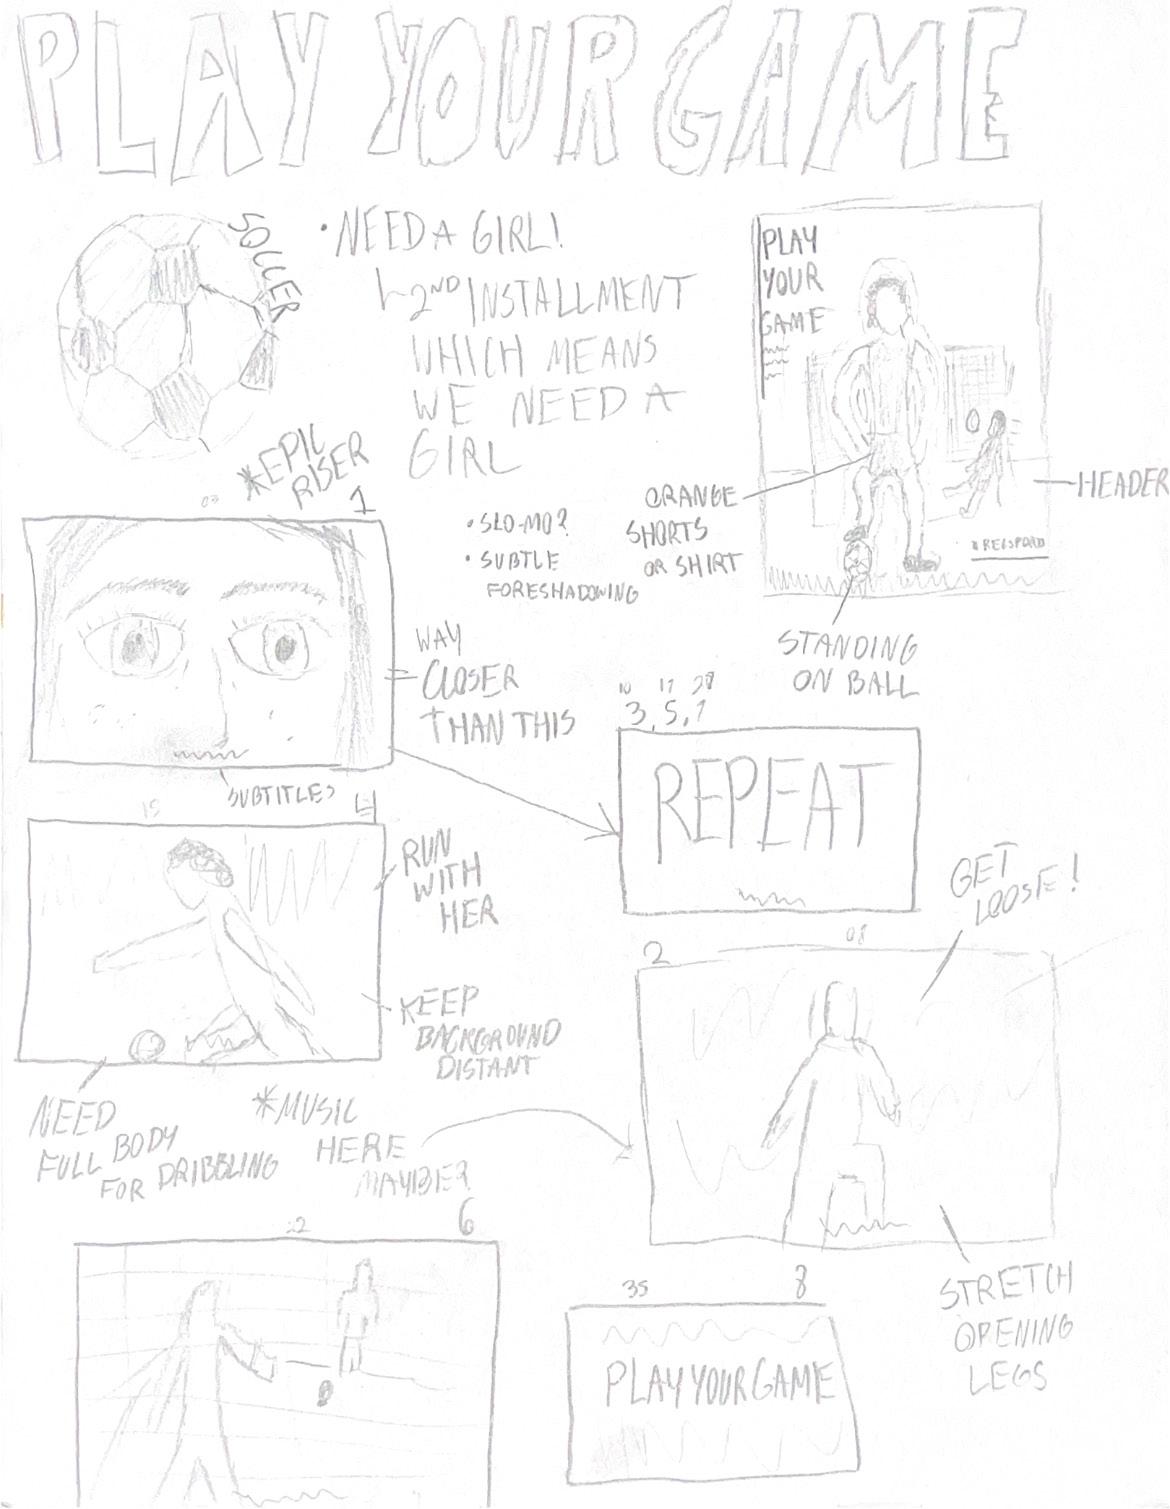 PLAY YOUR GAME
SOCCER
• NEED A GIRL!
2ND INSTALLMENT
WHICH MEANS
WE NEED A
GIRL
PLAY
YOUR
GAME
HEADER
ORANGE
SHORTS
OR SHIRT
STANDING
ON BALL
*EPIC
RISER
• SLO-MO?
• SUBTLE
FORESHADOWING
03
1
WAY
CLOSER
THAN THIS
SUBTITLES
10 17 28
3, 5, 7
REPEAT
15
4
RUN
WITH
HER
KEEP
BACKGROUND
DISTANT
NEED
FULL BODY
FOR DRIBBLING
*MUSIC
HERE
MAYBE?
2
08
GET
LOOSE!
STRETCH
OPENING
LEGS
22
6
35
8
PLAY YOUR GAME